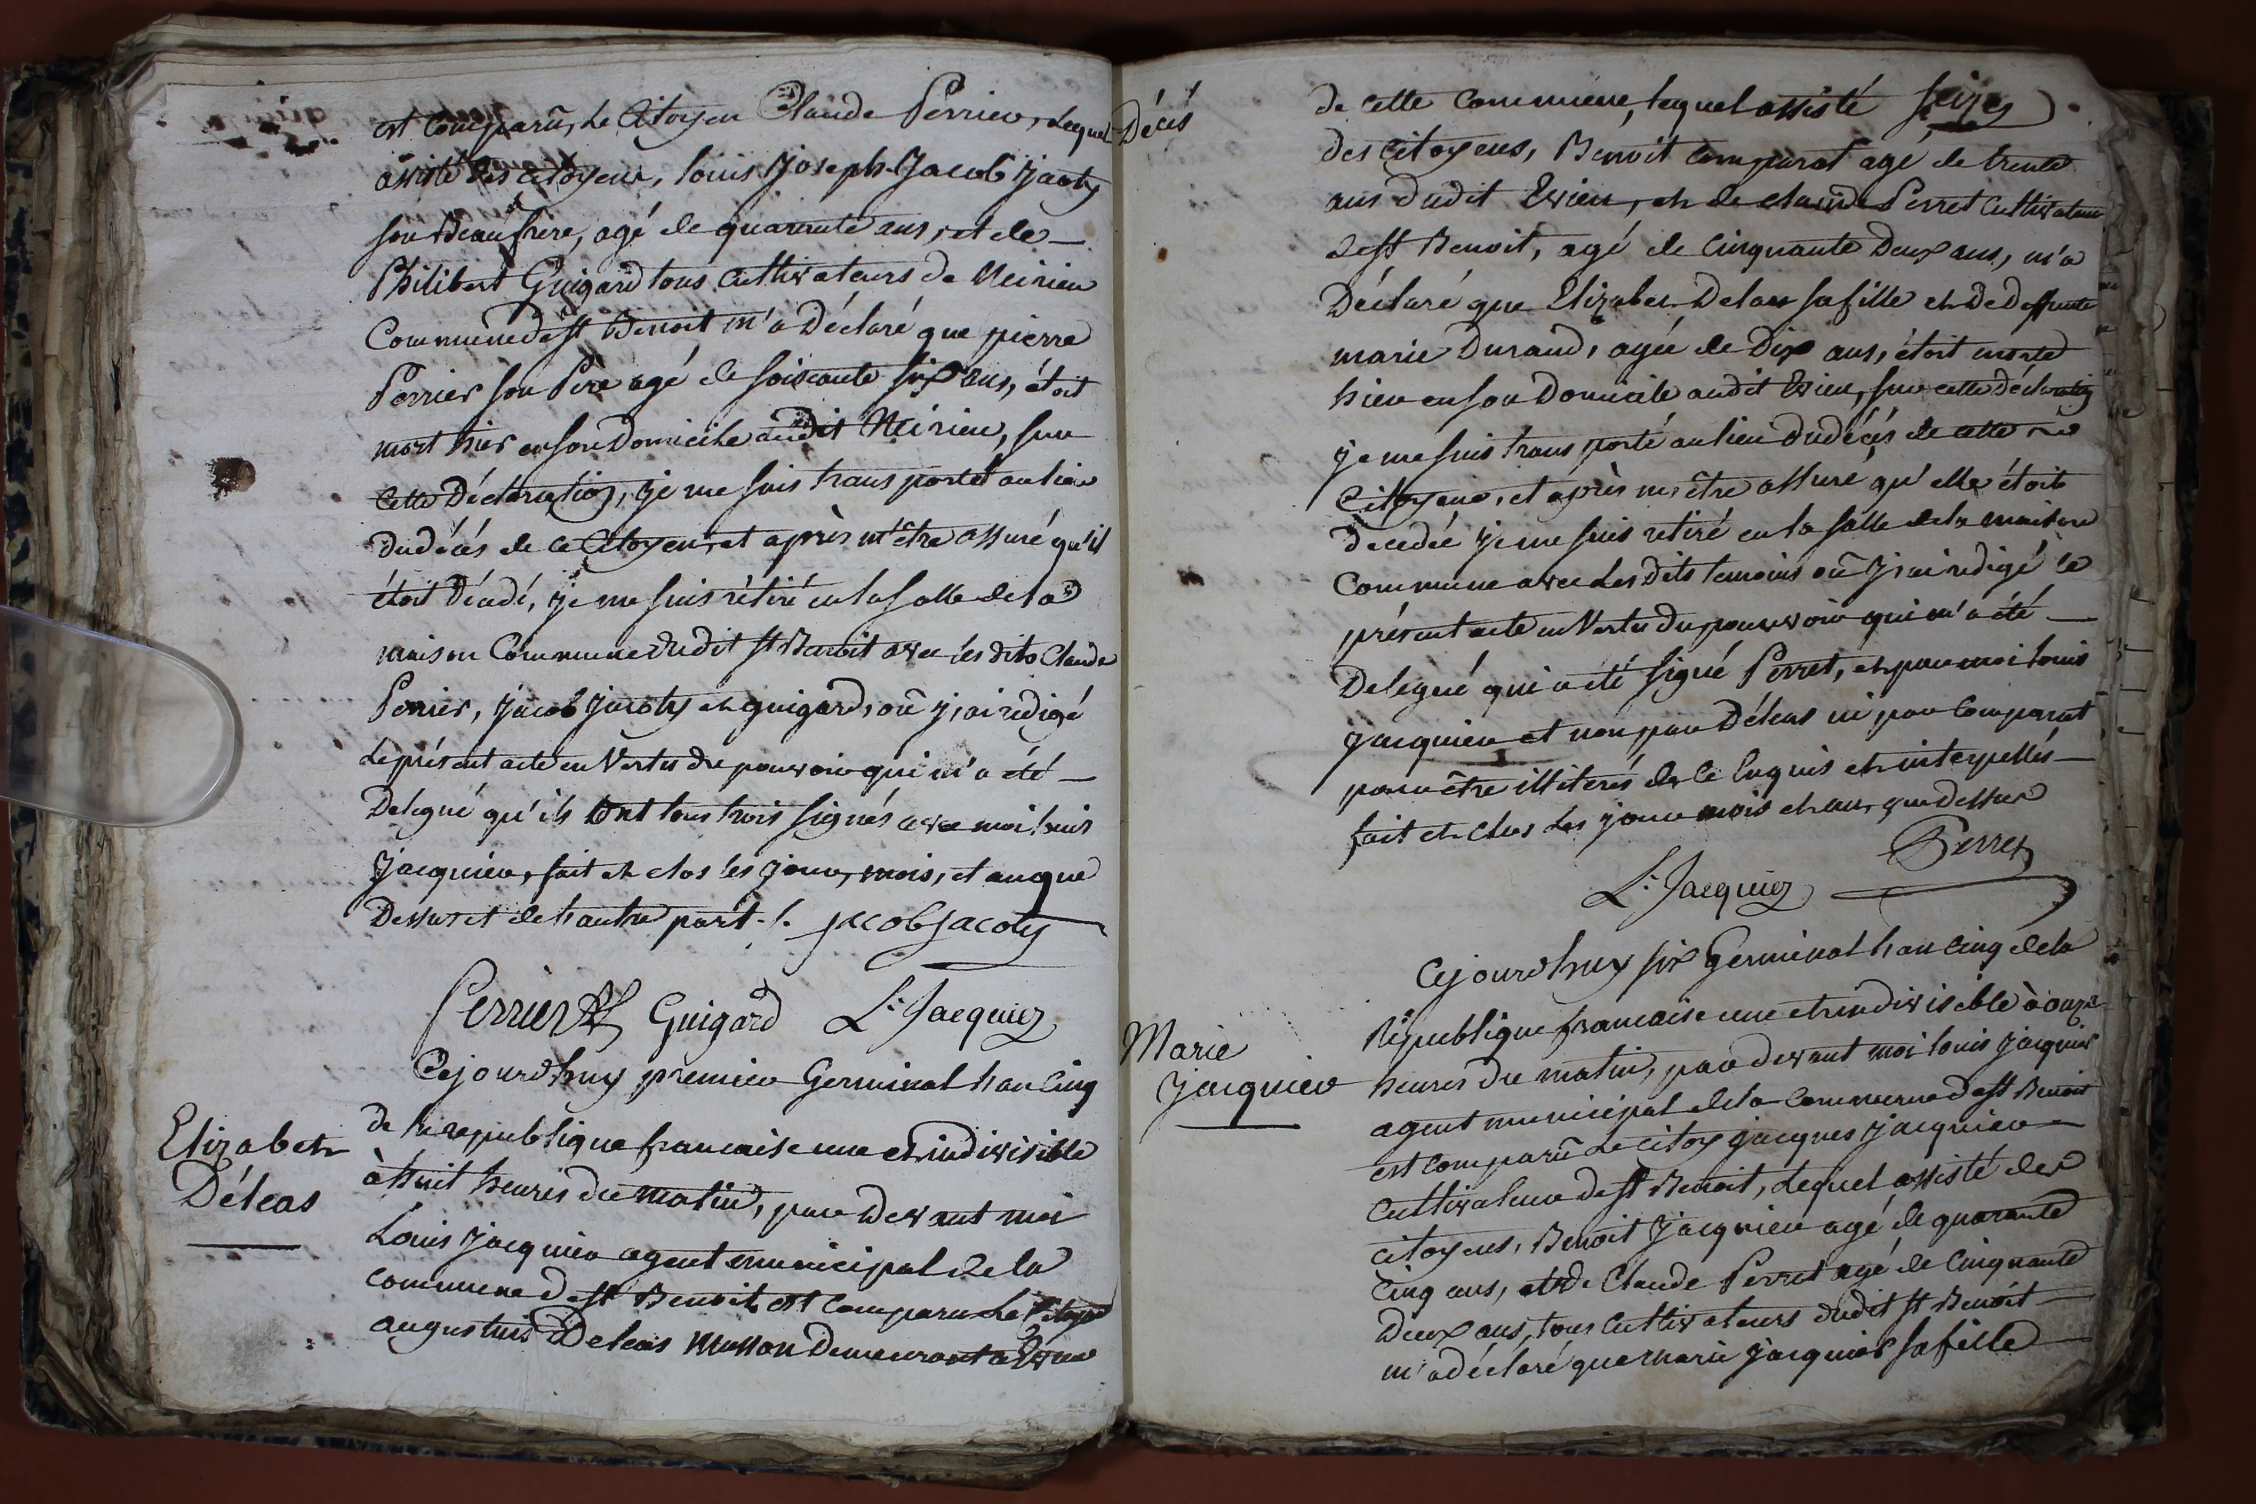 est comparu, Le Citoyen Claude Perrier, Lequel
assisté des citoyens, louis Joseph Jacob Jacoty
son Beaufrere, agé de quarante ans, et de
Philibert Guigard tous cultivateurs de Neirieu
Commune de st Benoit m'a Déclaré que pierre
Perrier son Pere agé de soixante six ans, étoit
mort hier en son Domicile audit Neirieu, sur
cette Déclaration, je me suis transporté au lieu
du décés de ce Citoyen, et après m'être assuré qu'il
étoit Décédé, je me suis rétiré en la salle de la
maison Commune dudit st Benoit avec les dits Claude
Perrier, Jacob Jacoty et guigard, où j'ai rédigé
Le présent acte en Vertu du pouvoir qui m'a été
Delegué qu'ils ont tous trois signés avec moi louis
Jacquier, fait et clos les jour, mois, et an que
Dessus et de l'autre part ./. Jacob Jacoty
Perrier Guigard L. Jacquier
Elizabeth
Déleas
Cejourdhuy premier Germinal l'an Cinq
de la republique francaise une et indivisible
à huit heures du matin, par Devant moi
Louis Jacquier agent municipal de la
commune de st Benoit, est comparu Le Citoyen
augustins Deleas Masson Demeurant a Evieu
Décés
seize
de cette commune, lequel assisté
des citoyens, Benoit comparat agé de trente
ans dudit Evieu, et de claude Perret cultivateur
de st Benoit, agé de cinquante Deux ans, m'a
Déclaré que Elizabet Deleas sa fille et de deffunte
marie Durand, agée de Dix ans, étoit morte
hier en son Domicile audit Evieu, sur cette Déclaration
je me suis transporté au lieu du décés de cette
Citoyene, et après m'être assuré qu'elle étoit
decedée je me suis retiré en la salle de la maison
Commune avec Les Dits temoins où j'ai redigé le
présent acte en Vertu du pouvoir qui m'a été
Delegué qui a été signé Perret, et par moi louis
jacquier et non par Déleas ni par Comparat
pour être illiterés de ce Enquis et interpellés
fait et clos Les jour mois et an, que dessus
Perret
L. Jacquier
Marie
Jacquier
Cejourdhuy six Germinal l'an Cinq de la
République francaise une et indivisible à onze
heures du matin, par devant moi louis jacquier
agent municipal de la commune de st Benoit
est comparu Le citoy jacques jacquier
cultivateur de st Benoit, Lequel assisté des
citoyens, Benoit Jacquier agé de quarante
Cinq ans, et de Claude Perret agé de Cinquante
Deux ans, tous cultivateurs dudit st Benoit
m'a déclaré que marie jacquier sa fille